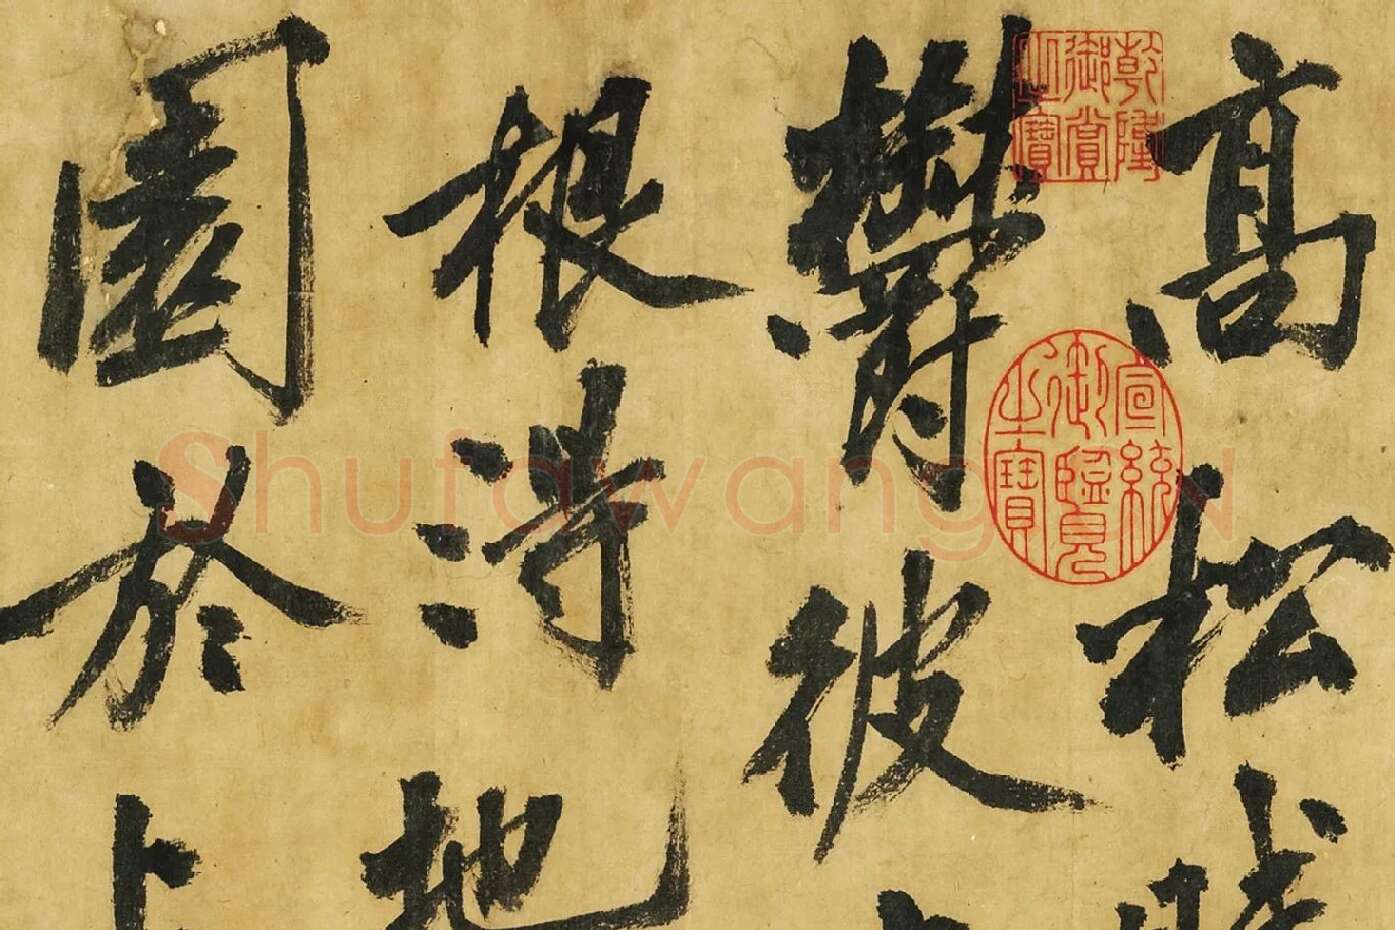 高松賦
鬱彼
根得地
園於上
乾隆御賞之寶
宣統御覽之寶
ShufawangCN